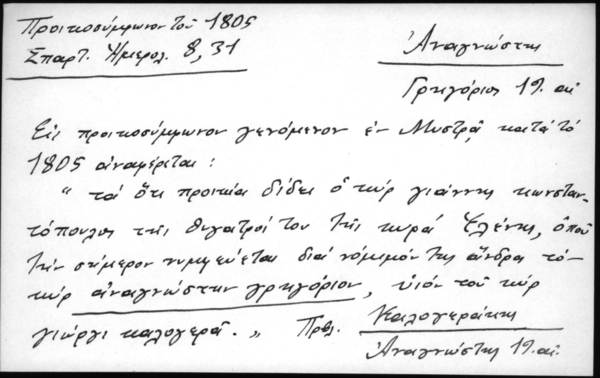 Προικοσύμφωνον τοῦ 1805
Σπαρτ. Ἡμερολ. 8, 31
Ἀναγνώστης
Γρηγόριος 19. αἰ
Εἰς προικοσύμφωνον γενόμενον ἐν Μυστρᾷ κατά τό
1805 ἀναφέρεται :
" τά ὅτι προικιά δίδει ὁ κύρ γιάννης κωνσταν-
τόπουλος τῆς θυγατρός του τῆς κυρά Ἑλένης, ὁποῦ
τήν σήμερον νυμφεύεται διά νόμιμόν της ἄνδρα τό-
κύρ ἀναγνώστην γρηγόριον, υἱόν τοῦ κύρ
γιώργι καλογερᾶ. „ Πρβλ. Καλογεράκης
Ἀναγνώστης 19. αἰ.